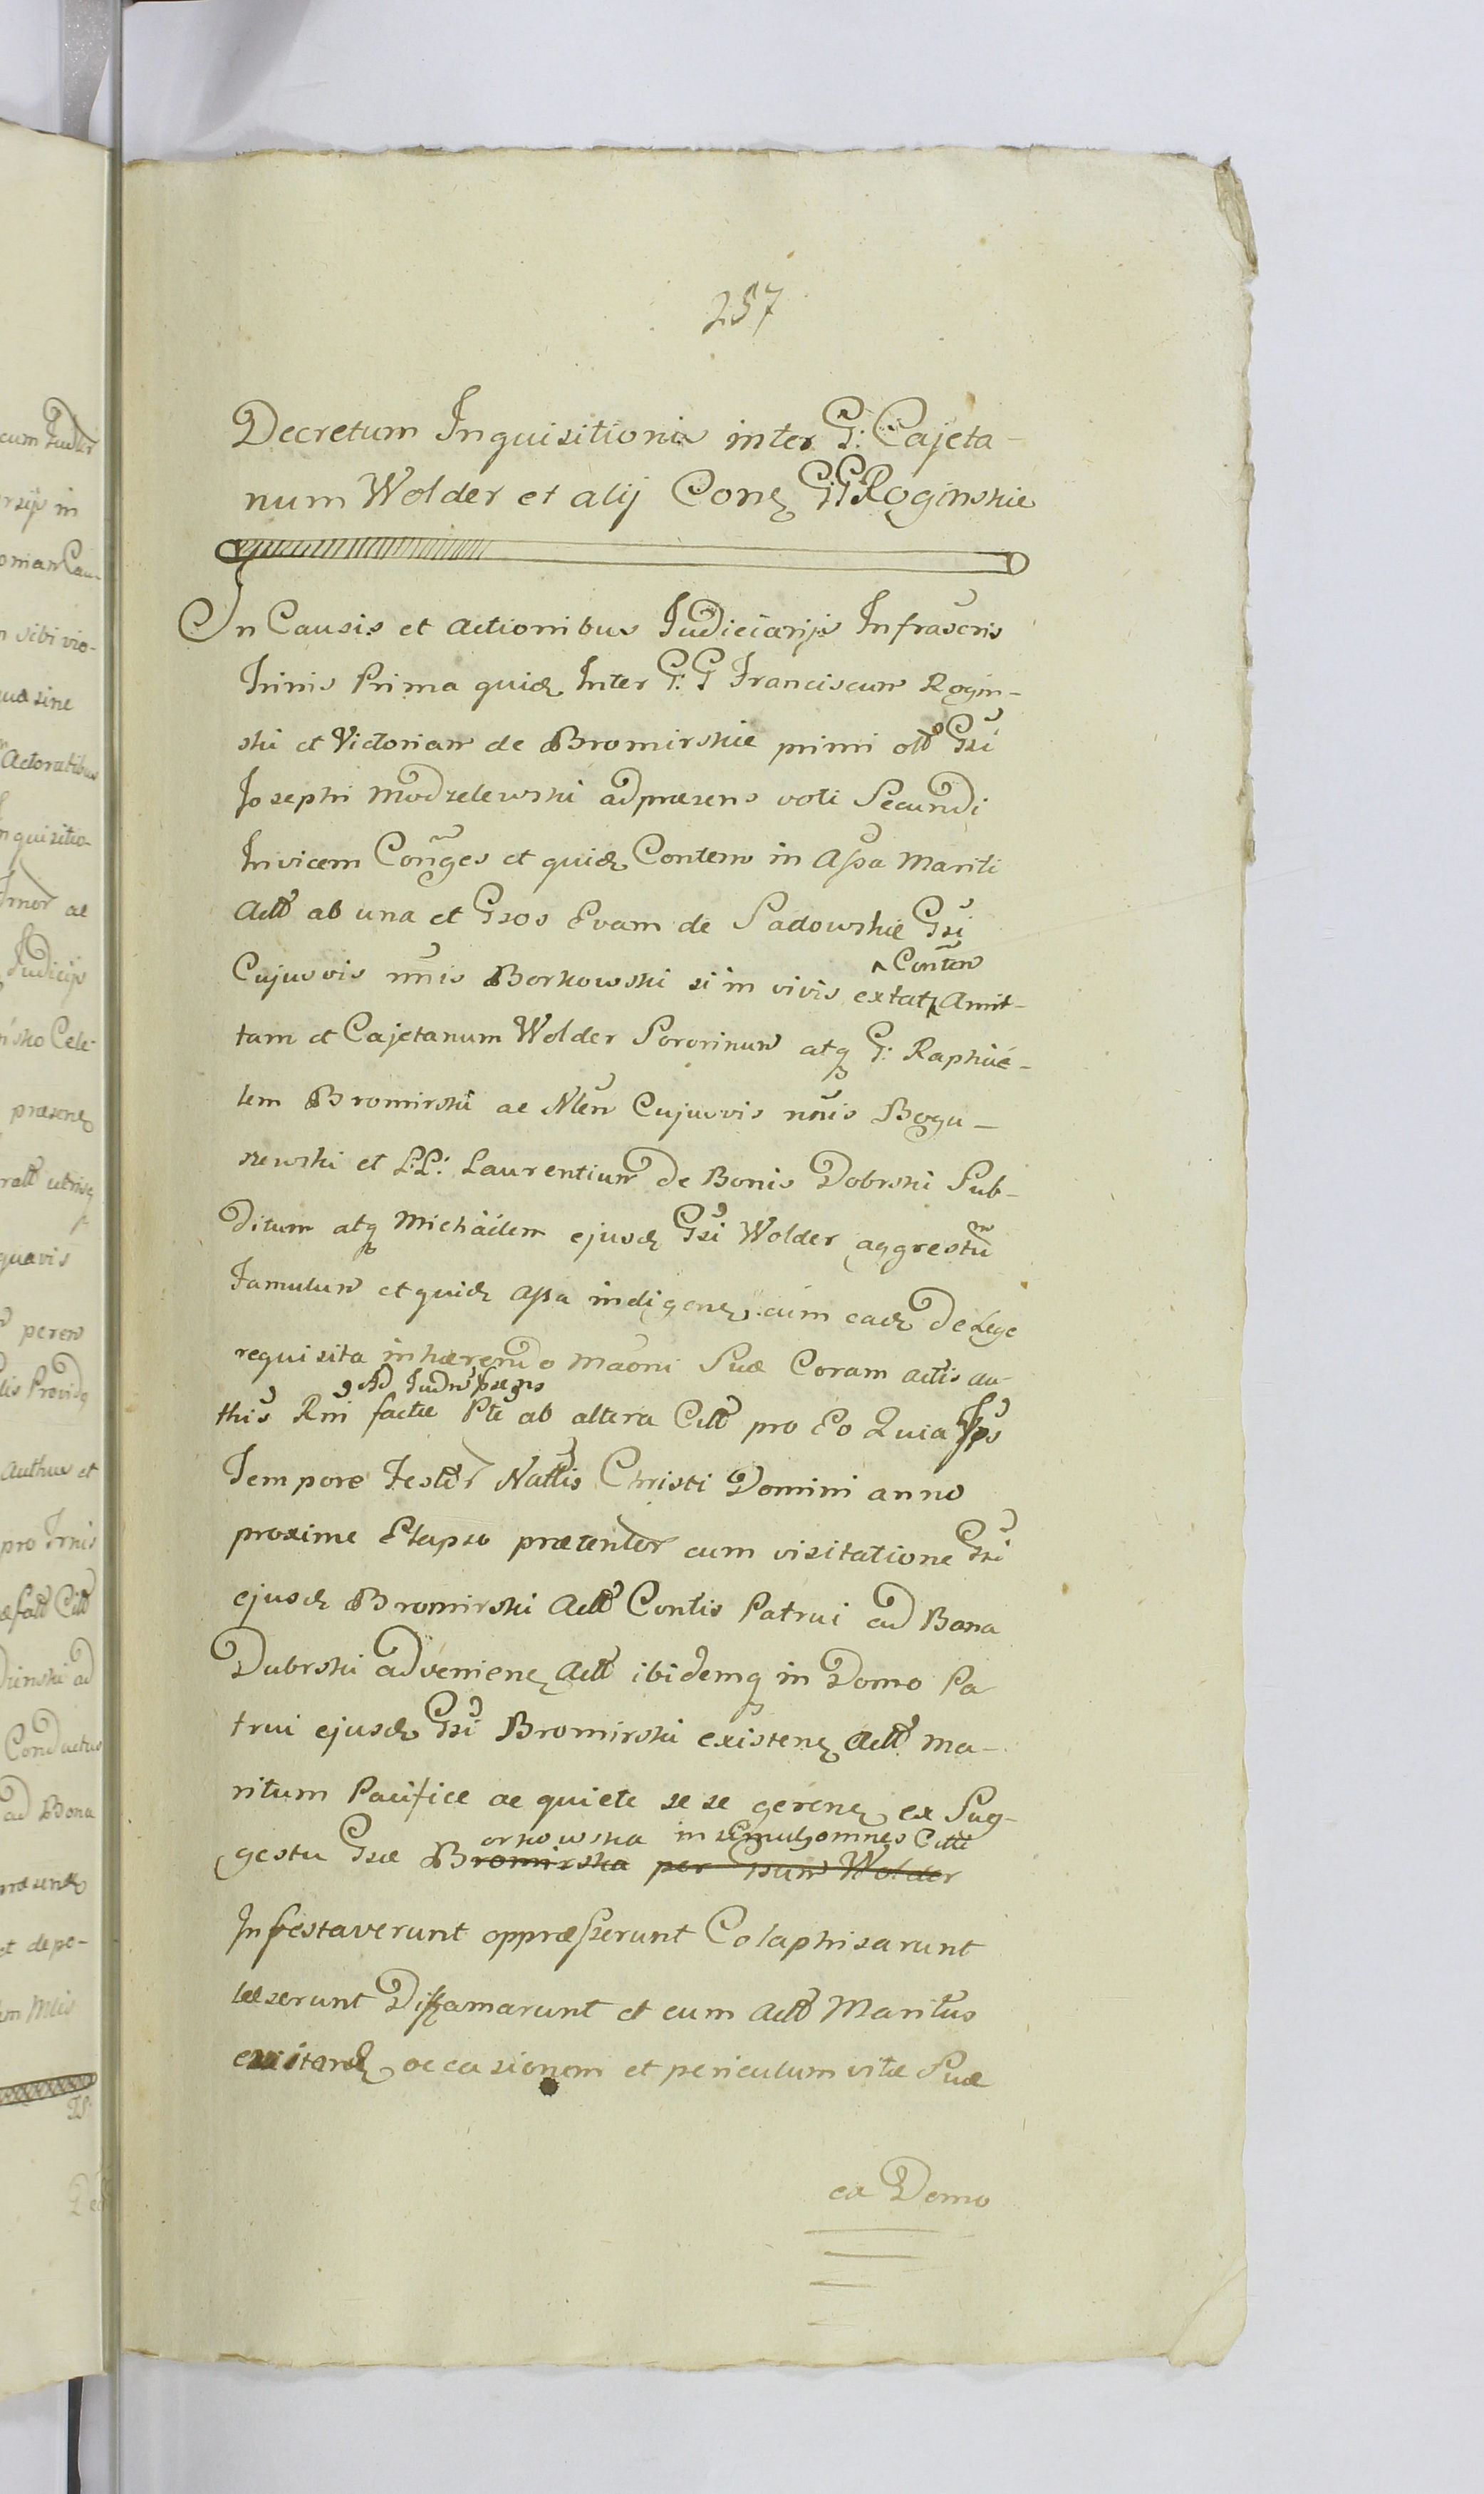 257
Decretum Inquisitionis inter G: Cajeta-
num Wolder et alij Conq GG Roginskie
In Causis et Actionibus Judiciarijs Infrascris
Trinis Prima quidq Inter G: G Franciscum Rogin-
ski et Victoriam de Bromirskie primi olt Gsi
Josephi Modzelewski adpraesens voti Secundi
Invicem Conges et quidq Conten in Assa Mariti
Actt ab una et Gsos Evam de Sadowskie Gsi
Cujusvis nnis Borkowski si in vivis extat Conten Amit-
tam et Cajetanum Wolder Sororinum atq G: Raphae-
lem Bromirski ac Nlen Cujusvis nnis Bogu-
szewski et LL: Laurentium de Bonis Dobrski Sub-
ditum atq Michaelem ejusdq Gsi Wolder aggrestu
Famulum et quidq Assa indigenq cum eadq De Lege
requisita inhaerendo Maoni Suae Coram actis au-
this Rni factae Pte ab altera Citt pro Eo Quia Ips
Tempore Festor Natlis Christi Domini anno
proxime Elapso praetenter cum visitatione Gsi
ejusdq Bromirski Actt Contis Patrui ad Bona
Dubrski advenienq Actt ibidemq in Domo Pa
trui ejusdq Gsi Bromirski existenq Actt Ma-
ritum Pacifice ac quiete se se gerenq ex Sug-
orkowska in simulq omnes Citti
gestu Gsae Bromirska per Gsum Wolder
Infestaverunt oppraesserunt Colaphisarunt
laeserunt Diffamarunt et cum Actt Maritus
occasionem et periculum vitae Suae
ex Domo